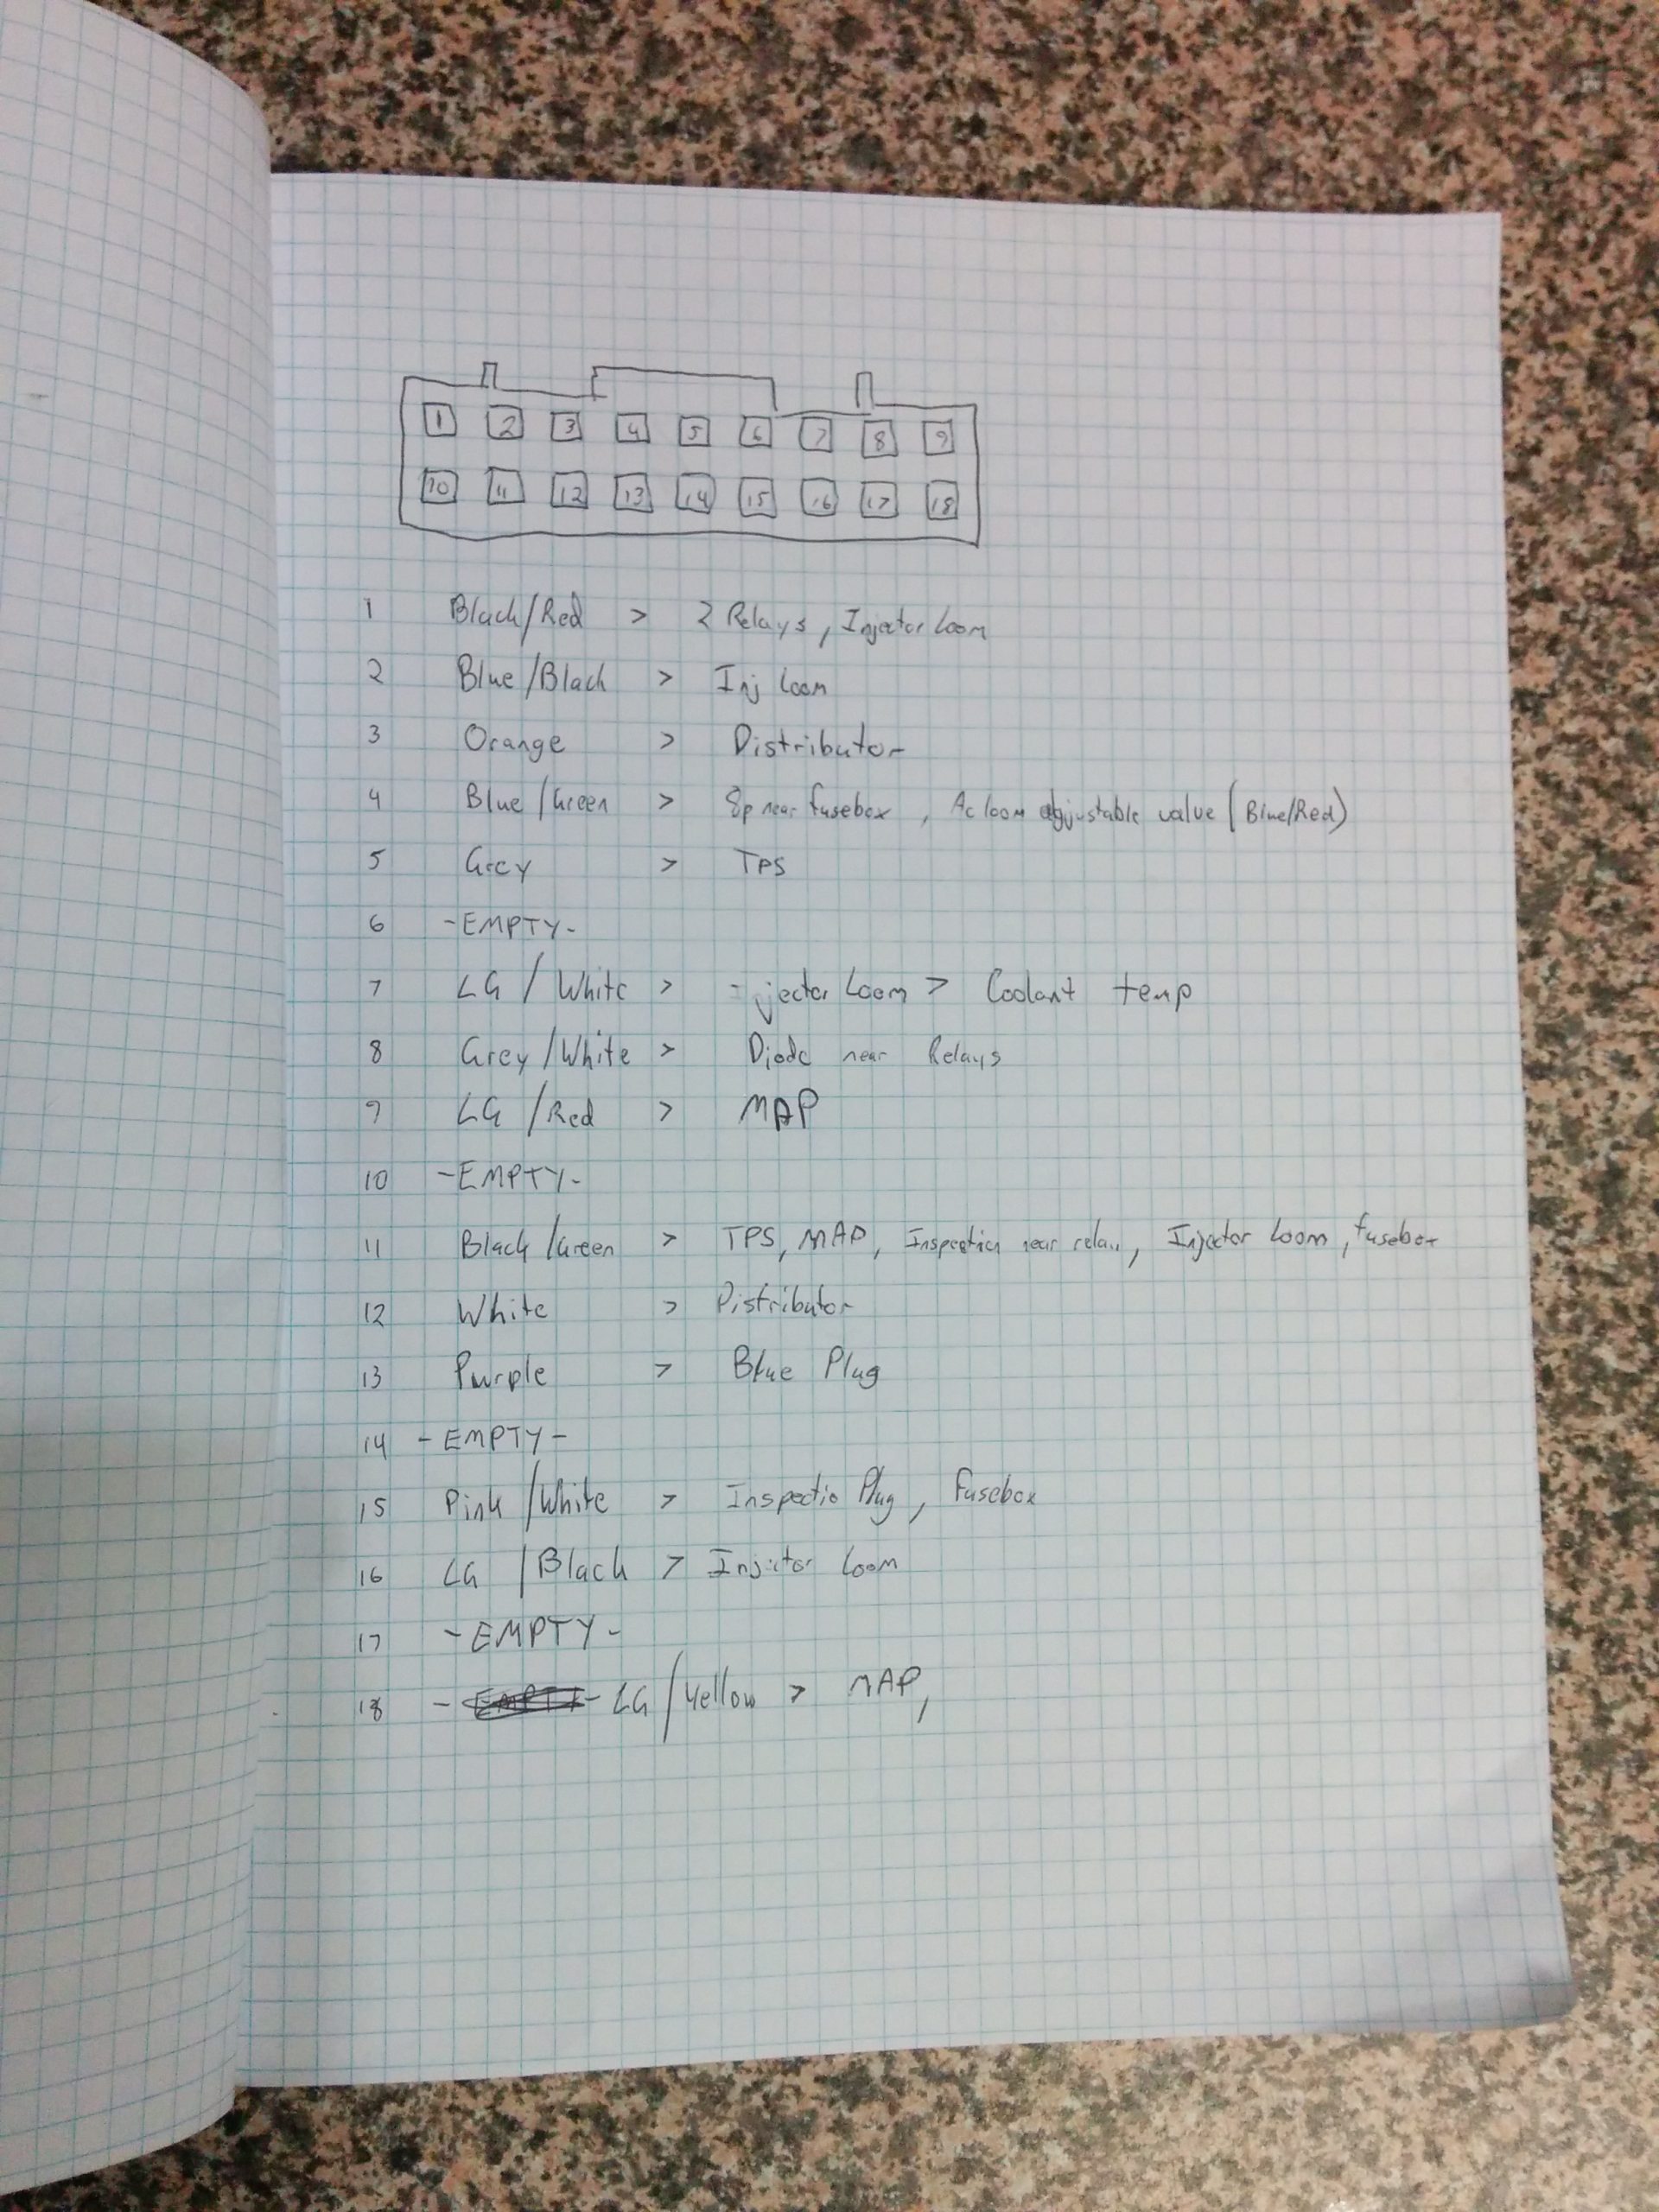 1 2 3 4 5 6 7 8 9
10 11 12 13 14 15 16 17 18
1 Black/Red > 2 Relays, Injector Loom
2 Blue/Black > Inj Loom
3 Orange > Distributor
4 Blue/Green > 8p near fusebox, Ac loom adjustable value (Blue/Red)
5 Grey > TPS
6 -EMPTY-
7 LG / White > Injector Loom > Coolant temp
8 Grey/White > Diode near Relays
9 LG /Red > MAP
10 -EMPTY-
11 Black/Green > TPS, MAP, Inspection near relay, Injector Loom, fusebox
12 White > Distributor
13 Purple > Blue Plug
14 -EMPTY-
15 Pink/White > Inspectio Plug, Fusebox
16 LG /Black > Injector Loom
17 -EMPTY-
18 - EMPTY - LG/Yellow > MAP,